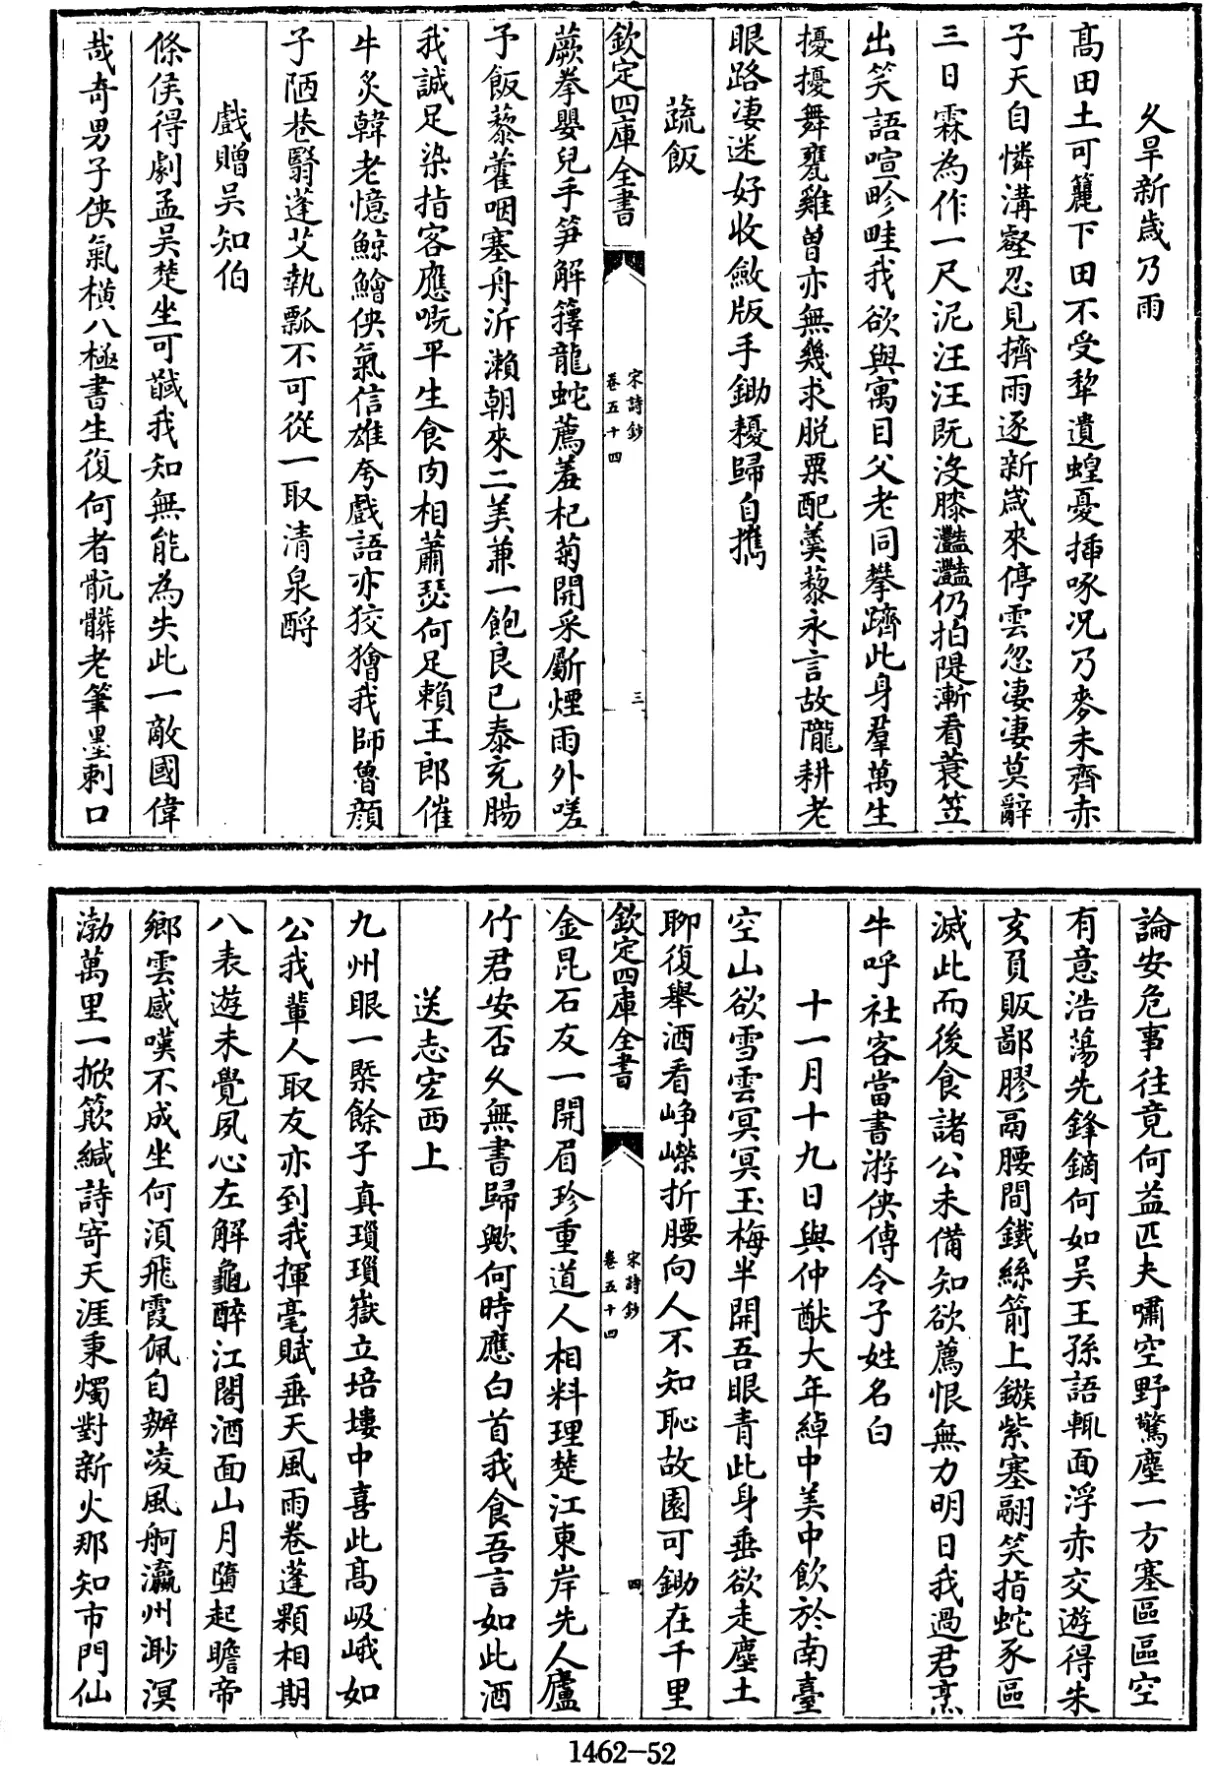 久旱新歲乃雨
髙田土可籭下田不受犂遺蝗憂揷啄况乃麥未齊赤
子天自憐溝壑忍見擠雨逐新歲來停雲忽凄凄莫辭
三日霖為作一尺泥汪汪既沒膝灩灩仍拍隄漸看蓑笠
出笑語喧畛畦我欲與寓目父老同攀躋此身羣萬生
擾擾舞甕雞曽亦無幾求脱粟配羮藜永言故隴耕老
眼路凄迷好收斂版手鋤耰歸自攜
蔬飯
欽定四庫全書
宋詩鈔
卷五十四
三
蕨拳嬰兒手笋解籜龍蛇薦羞杞菊開采斸煙雨外嗟
予飯藜藿咽塞舟泝瀨朝來二美兼一飽良已泰充腸
我誠足染指客應嘅平生食肉相蕭瑟何足賴王郎催
牛炙韓老憶鯨鱠俠氣信雄夸戲語亦狡獪我師魯顔
子陋巷翳蓬艾執瓢不可從一取清泉酹
戲贈吴知伯
條侯得劇孟吴楚坐可馘我知無能為失此一敵國偉
哉奇男子俠氣橫八極書生復何者骯髒老筆墨刺口
論安危事往竟何益匹夫嘯空野驚塵一方塞區區空
有意浩蕩先鋒鏑何如吴王孫語輒面浮赤交遊得朱
亥負販鄙膠鬲腰間鐵絲箭上鏃紫塞翮笑指蛇豕區
滅此而後食諸公未備知欲薦恨無力明日我過君烹
牛呼社客當書游俠傳令子姓名白
十一月十九日與仲猷大年綽中美中飲於南臺
空山欲雪雲冥冥玉梅半開吾眼青此身垂欲走塵土
聊復舉酒看峥嶸折腰向人不知恥故園可鋤在千里
欽定四庫全書
宋詩鈔
卷五十四
四
金昆石友一開眉珍重道人相料理楚江東岸先人廬
竹君安否久無書歸歟何時應白首我食吾言如此酒
送志宏西上
九州眼一槩餘子真瑣瑣嶽立培塿中喜此髙岋峨如
公我輩人取友亦到我揮毫賦垂天風雨卷蓬顆相期
八表遊未覺夙心左解龜醉江閣酒面山月墮起瞻帝
鄉雲感嘆不成坐何須飛霞佩自辦凌風舸瀛州渺溟
渤萬里一掀簸緘詩寄天涯秉燭對新火那知市門仙
1462-52